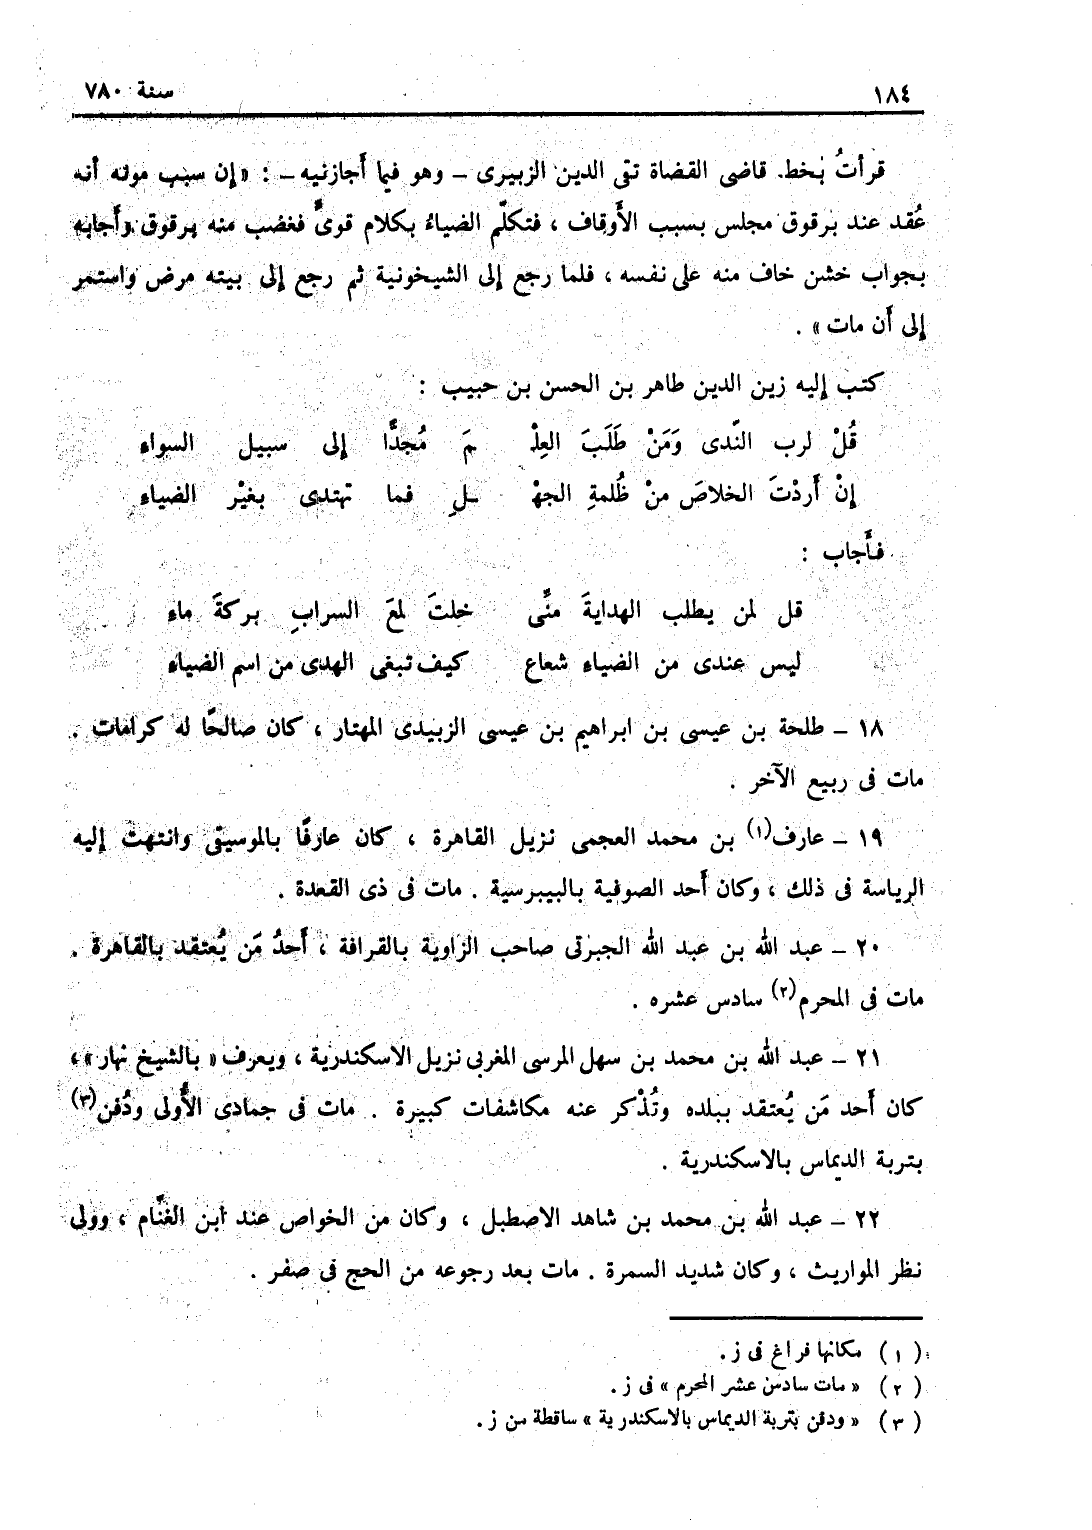 ١٨٤ سنة ٧٨٠
قرأتُ بخط. قاضى القضاة تقى الدين الزبيرى ــ وهو فيما أجازنيه ــ : « إن سبب موته أنه
عُقد عند برقوق مجلس بسبب الأَوقاف ، فتكلّم الضياءُ بكلام قوىٍّ فغضب منه برقوق وأَجابه
بجواب خشن خاف منه على نفسه ، فلما رجع إلى الشيخونية ثم رجع إلى بيته مرض واستمر
إلى أَن مات » .
كتب إليه زين الدين طاهر بن الحسن بن حبيب :
قُلْ لرب النّدى وَمَنْ طَلَبَ العِلْـ ـمَ مُجدًّا إلى سبيل السواءِ
إنْ أَردْتَ الخلاصَ منْ ظُلمةِ الجهْـ ـلِ فما تهتدى بغيْر الضياءِ
فأَجاب :
قل لمن يطلب الهدايةَ منِّى خلتَ لمعَ السرابِ بركةَ ماءِ
ليس عندى من الضياءِ شعاع كيف تبغى الهدى من اسم الضياءِ
١٨ ــ طلحة بن عيسى بن ابراهيم بن عيسى الزبيدى المهتار ، كان صالحًا له كرامات .
مات فى ربيع الآخر .
١٩ ــ عارف(١) بن محمد العجمى نزيل القاهرة ، كان عارفًا بالموسيقى وانتهت إليه
الرياسة فى ذلك ، وكان أَحد الصوفية بالبيبرسية . مات فى ذى القعدة .
٢٠ ــ عبد الله بن عبد الله الجبرتى صاحب الزاوية بالقرافة ، أَحدُ مَن يُعتقد بالقاهرة .
مات فى المحرم(٢) سادس عشره .
٢١ ــ عبد الله بن محمد بن سهل المرسى المغربى نزيل الاسكندرية ، ويعرف « بالشيخ نهار » ،
كان أَحد مَن يُعتقد ببلده وتُذْكر عنه مكاشفات كبيرة . مات فى جمادى الأُولى ودُفن(٣)
بتربة الديماس بالاسكندرية .
٢٢ ــ عبد الله بن محمد بن شاهد الاصطبل ، وكان من الخواص عند ابن الغنَّام ، وولى
نظر المواريث ، وكان شديد السمرة . مات بعد رجوعه من الحج فى صفر .
( ١ ) مكانها فراغ فى ز .
( ٢ ) « مات سادس عشر المحرم » فى ز .
( ٣ ) « ودفن بتربة الديماس بالاسكندرية » ساقطة من ز .